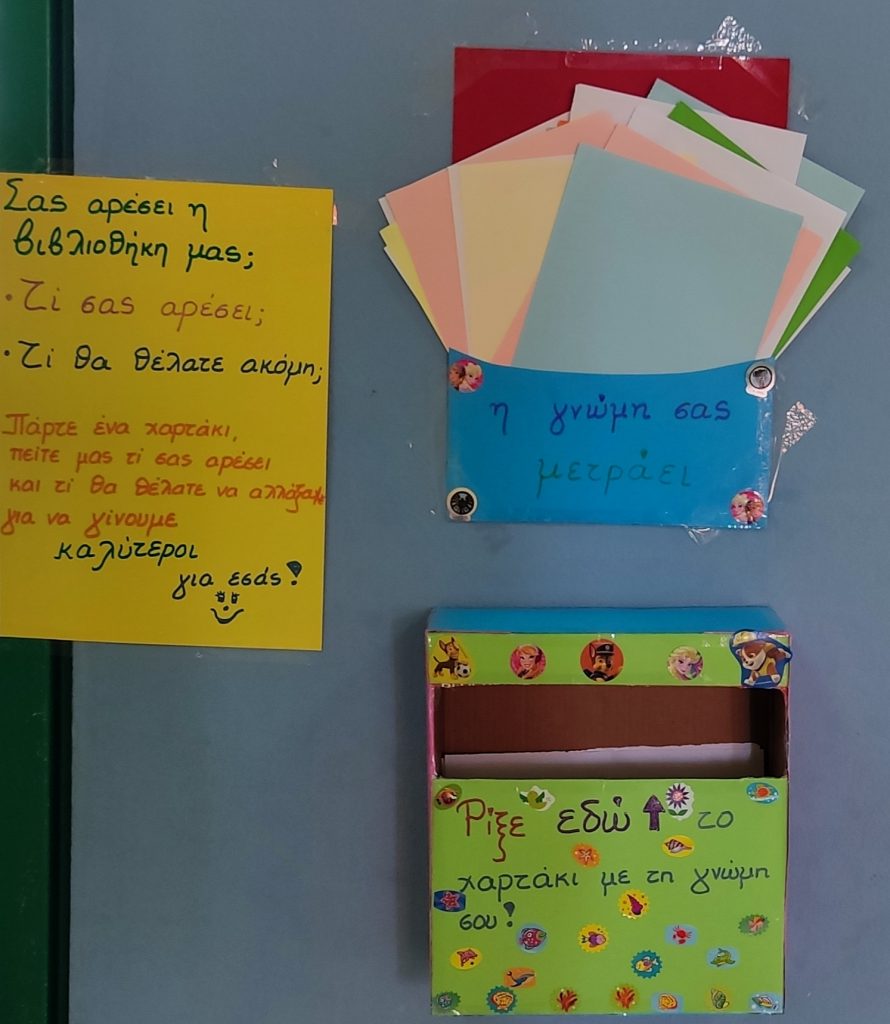 Σας αρέσει η
βιβλιοθήκη μας;
• Τί σας αρέσει;
• Τί θα θέλατε ακόμη;
Πάρτε ένα χαρτάκι,
πείτε μας τί σας αρέσει
και τί θα θέλατε να αλλάξουμε
για να γίνουμε
καλύτεροι
για εσάς!
η γνώμη σας
μετράει
Ρίξε εδώ ↑ το
χαρτάκι με τη γνώμη
σου!